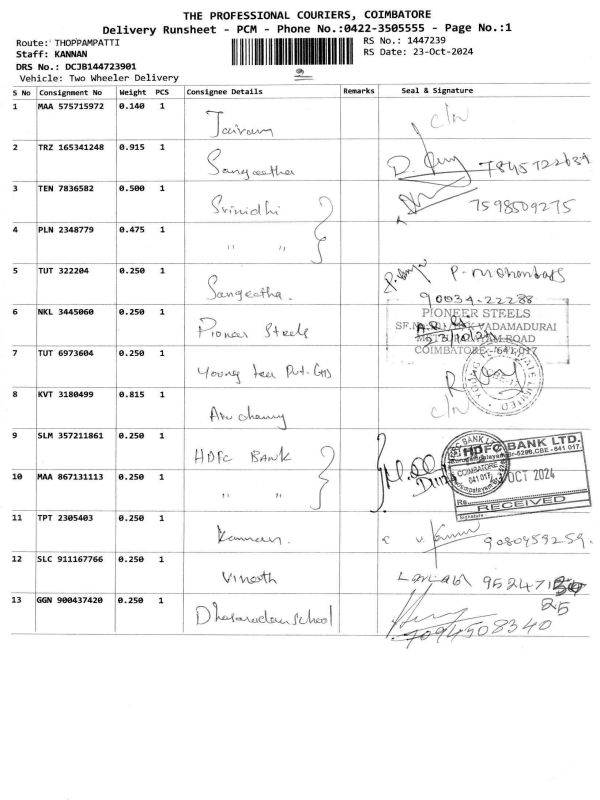 THE PROFESSIONAL COURIERS, COIMBATORE
Delivery Runsheet - PCM - Phone No.:0422-3505555 - Page No.:1
Route: THOPPAMPATTI
RS No.: 1447239
Staff: KANNAN
RS Date: 23-Oct-2024
DRS No.: DCJB144723901
Vehicle: Two Wheeler Delivery
S No Consignment No Weight PCS Consignee Details Remarks Seal & Signature
1 MAA 575715972 0.140 1 Jairam c/n
2 TRZ 165341248 0.915 1 Sangeetha 7845722639
3 TEN 7836582 0.500 1 Srinidhi 7598509275
4 PLN 2348779 0.475 1 " "
5 TUT 322204 0.250 1 Sangeetha. P-Mohandass
90034-22288
6 NKL 3445060 0.250 1 Pioneer Steels PIONEER STEELS
VADAMADURAI
ROAD
COIMBATORE - 641 017
7 TUT 6973604 0.250 1 Young
8 KVT 3180499 0.815 1 c/n
9 SLM 357211861 0.250 1 HDFC BANK HDFC BANK LTD.
COIMBATORE
641 017
OCT 2024
Rs.
RECEIVED
Signature
10 MAA 867131113 0.250 1 " "
11 TPT 2305403 0.250 1 Kannan. 9080459259.
12 SLC 911167766 0.250 1 Vinoth 95247
25
13 GGN 900437420 0.250 1 7094508340